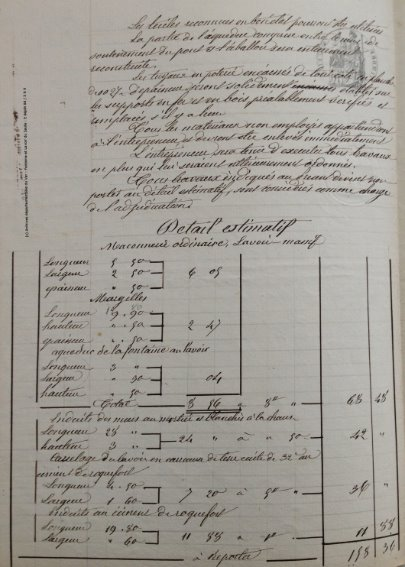 Les tuiles reconnues en bon état pourront être utilisées
La partie de l'aqueduc comprise entre le mur de
soutènement du pont et l'abattoir sera entièrement
reconstruite.
Les tuyaux en poterie encaissés de tous côtés en
d'épaisseur seront solidement établis sur
les supports en fer et en bois préalablement vérifiés et
remplacés s'il y a lieu.
Tous les matériaux non employés appartiendront
à l'entrepreneur et devront être enlevés immédiatement
L'entrepreneur sera tenu d'exécuter tous travaux
en plus qui lui seraient ultérieurement ordonnés.
Tous travaux indiqués au présent devis non
portés au détail estimatif, sont considérés comme charge
de l'adjudication.
Détail estimatif
Maçonnerie ordinaire, Lavoir massif
Longueur 5 50
Largeur 2 50 6 05
épaisseur " 50
Margelles
Longueur 19 90
hauteur " 50 2 47
épaisseur
aqueduc de la fontaine au lavoir
Longueur 3 "
Largeur 04
hauteur " 50
Total 8 56 à 8 " 68 48
Enduits des murs au mortier et blanchis à la chaux
Longueur
hauteur 3 " 24 " à 50 42 "
Carrelage du lavoir en carreaux de terre cuite de 32 au
ciment de roquefort
Longueur 4 50
Largeur 1 60 7 20 à 5 " 36 "
Enduits au ciment de roquefort
Longueur 19 80
Largeur " 60 11 88 à 1 " 11 88
à Reporter 158 36